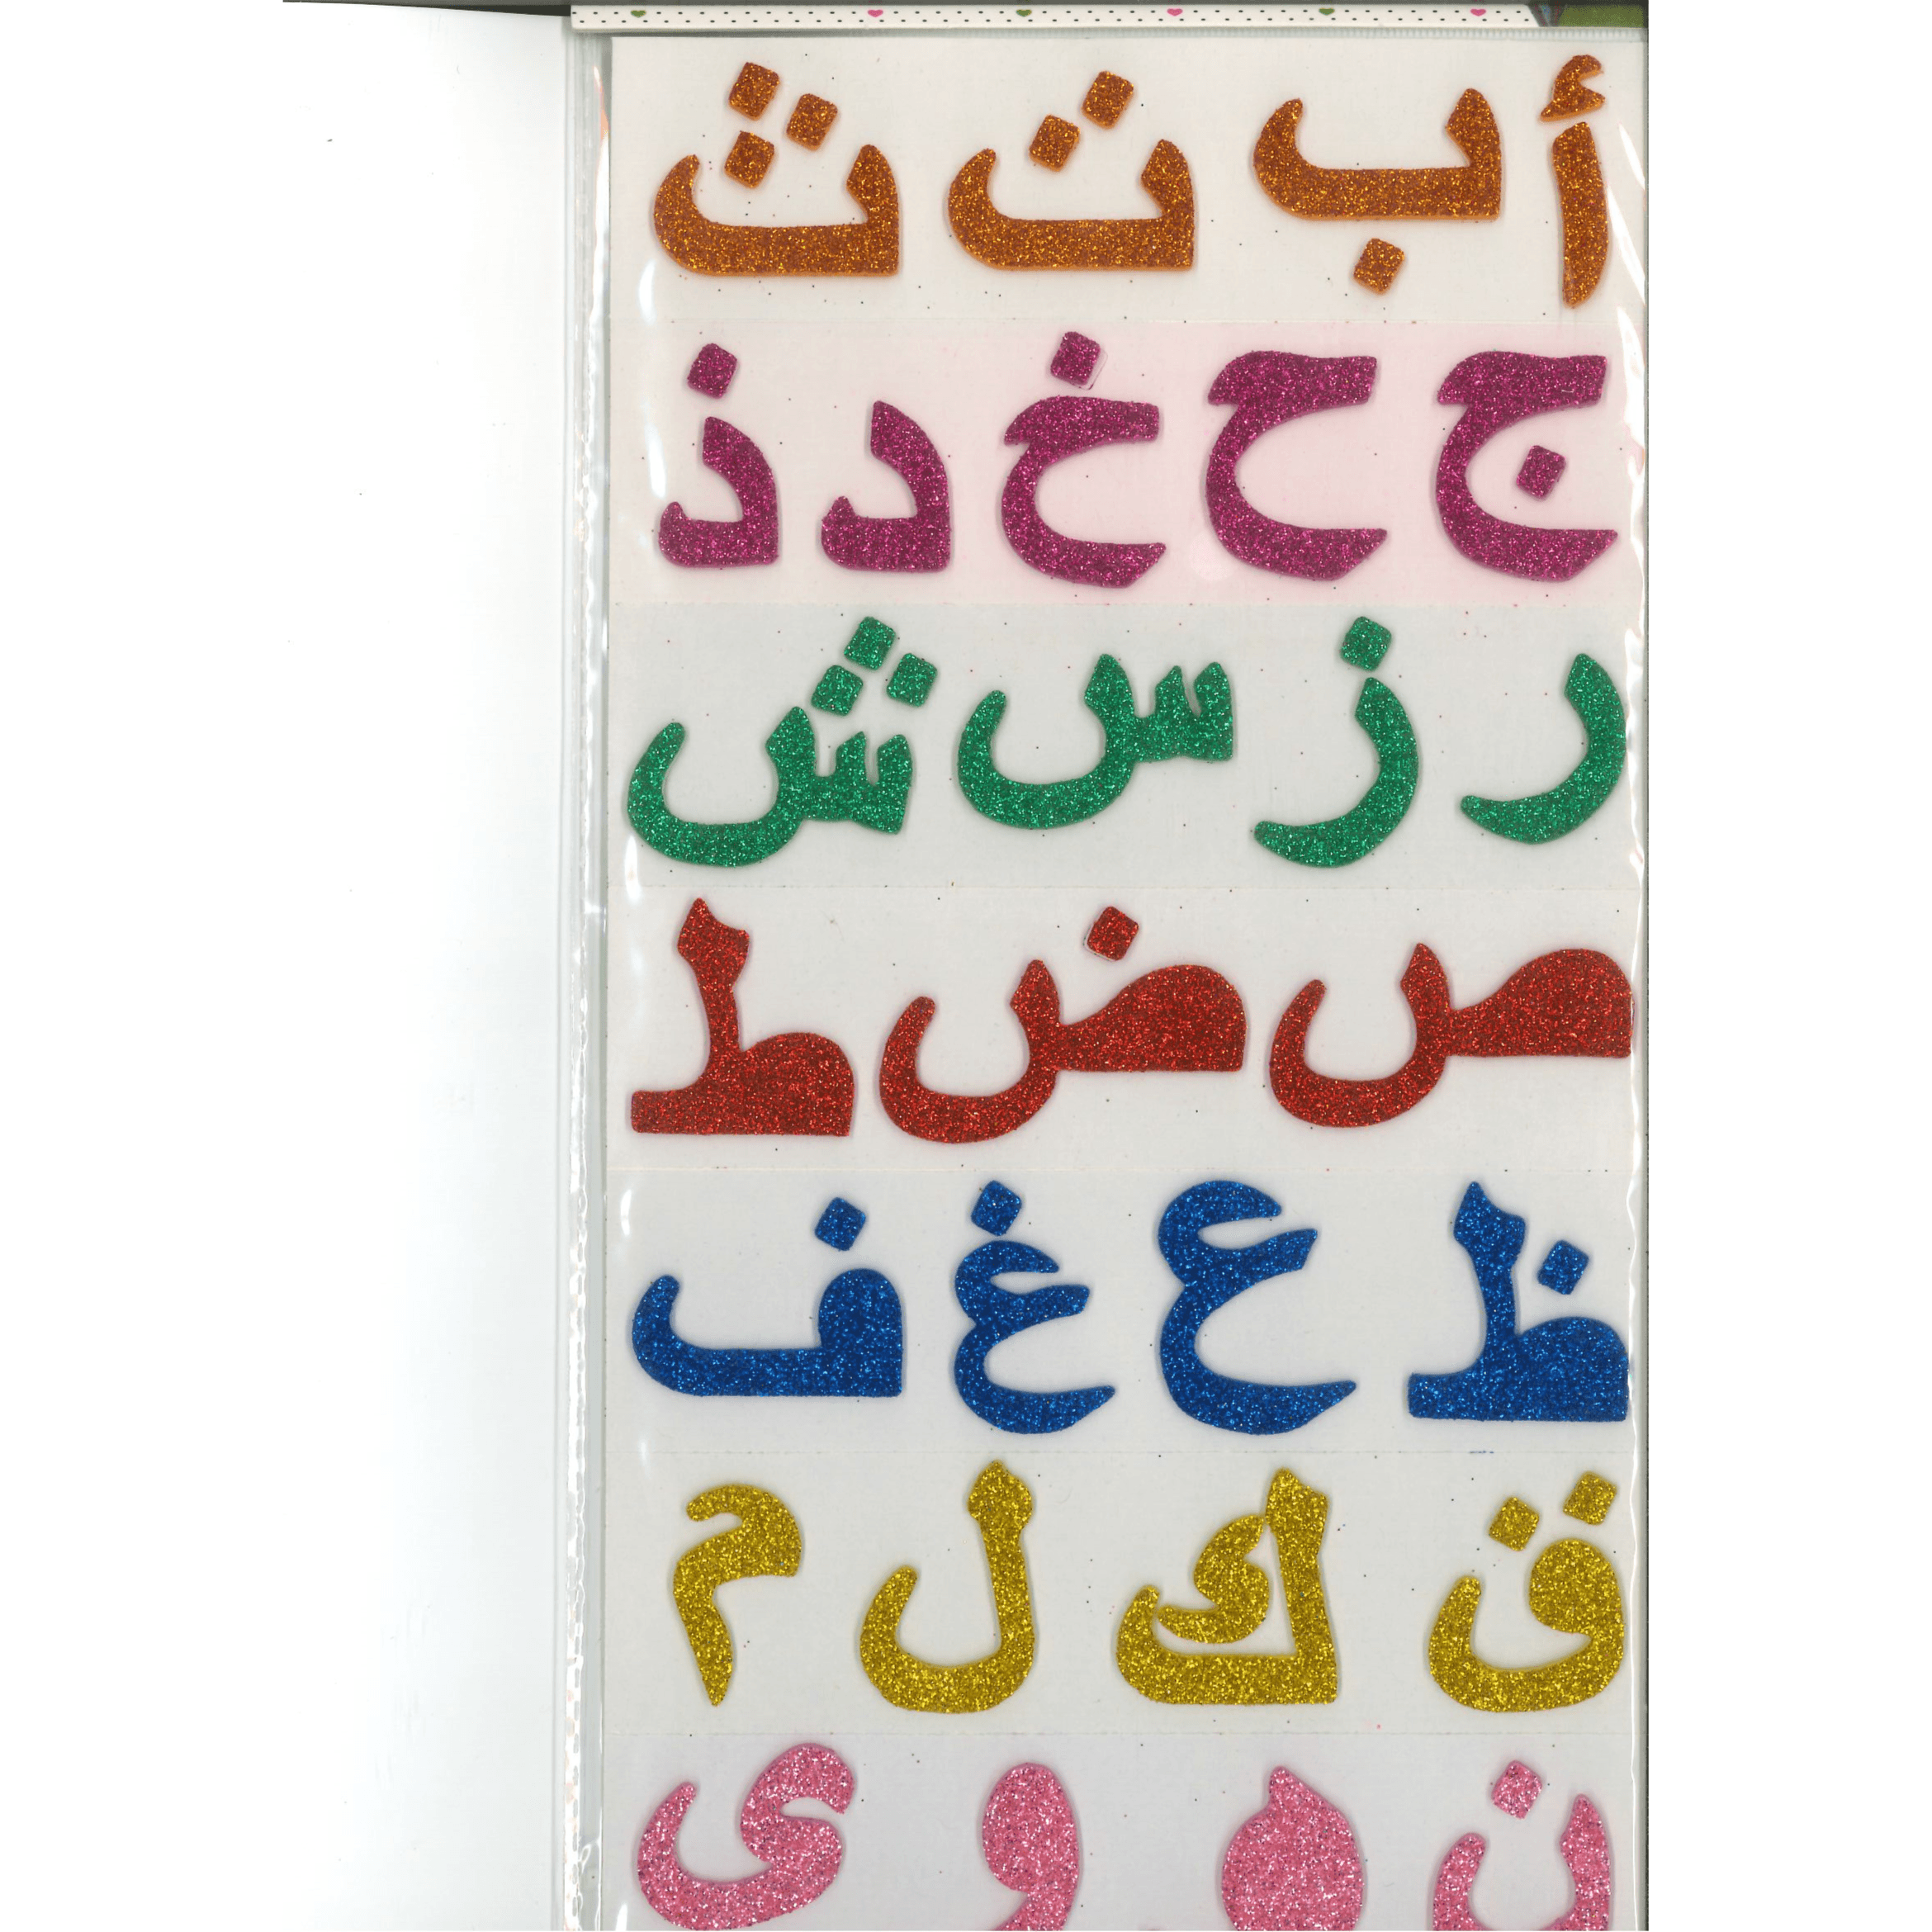 أ ب ت ث
ج ح خ د ذ
ر ز س ش
ص ض ط
ظ ع غ ف
ق ك ل م
ن ه و ى